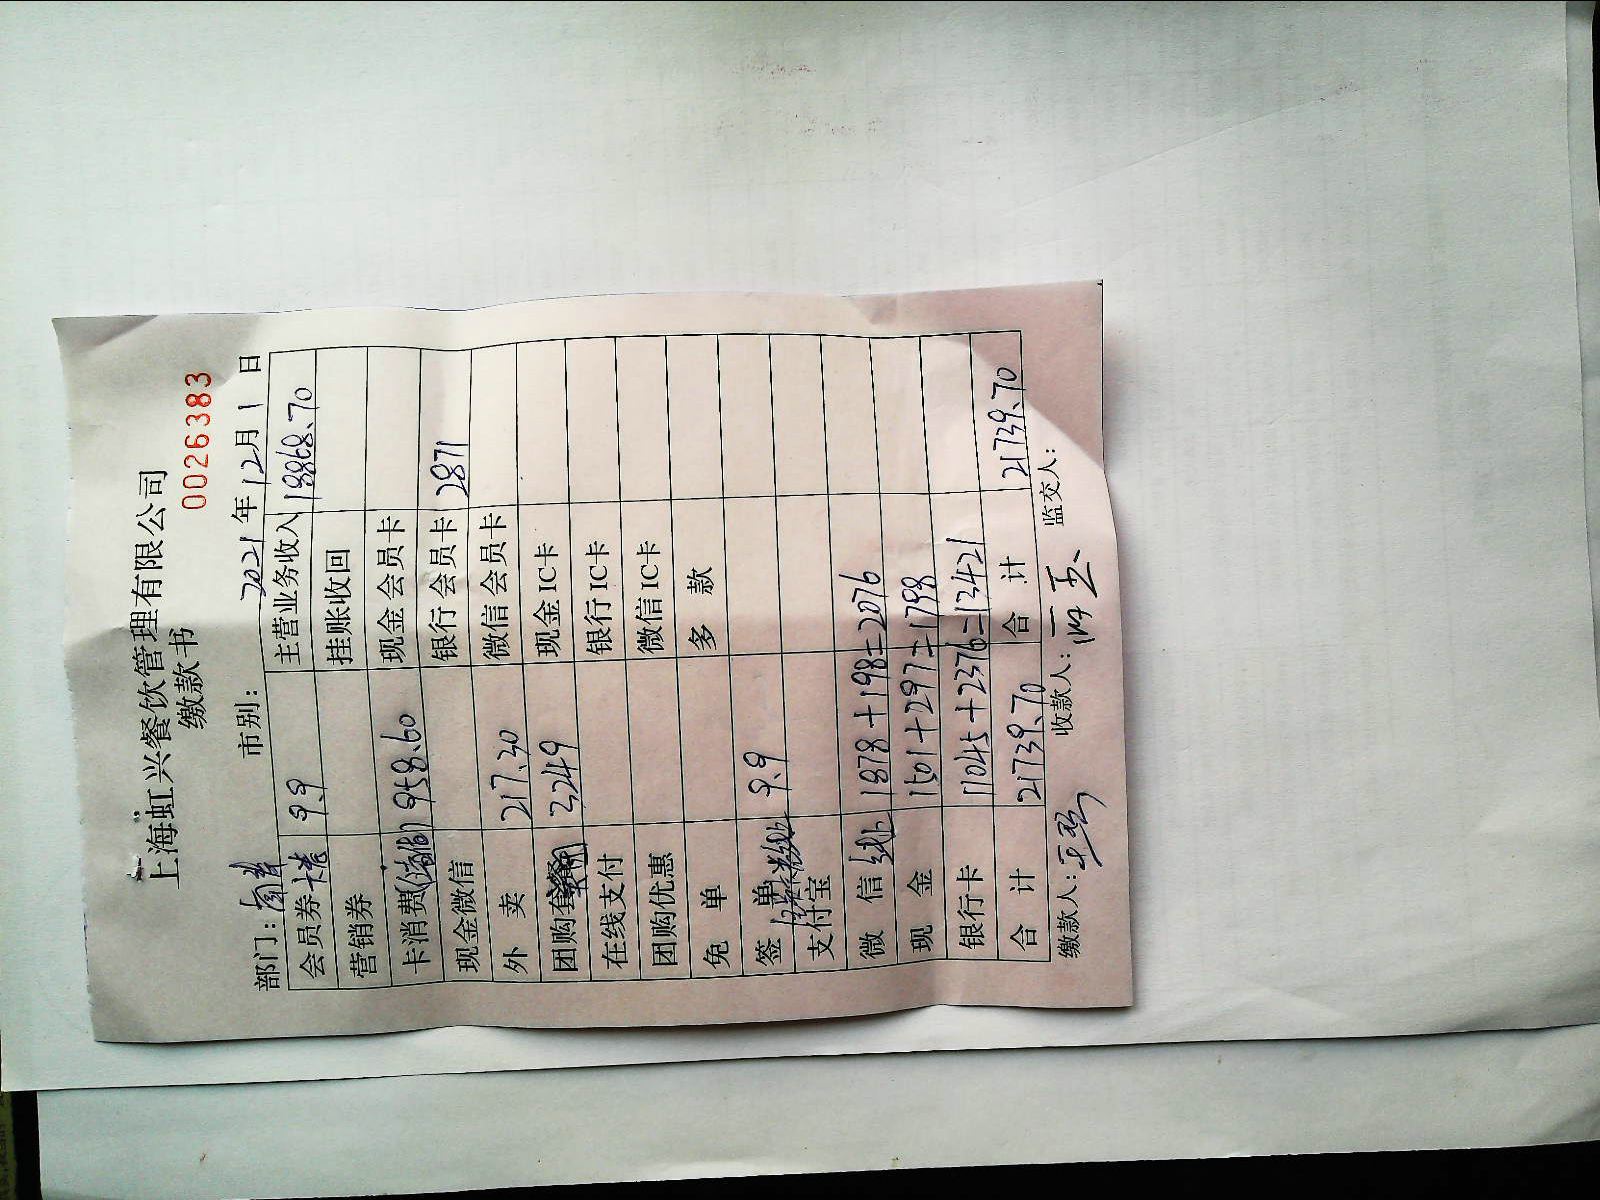 上海虹兴餐饮管理有限公司
缴款书
0026383
部门: 市别: 2021年12月1日
会员券 9.9 主营业务收入 18868.70
营销券 挂账收回
卡消费 958.60 现金会员卡
现金微信 银行会员卡 2871
外卖 217.30 微信会员卡
团购套餐 3249 现金IC卡
在线支付 银行IC卡
团购优惠 微信IC卡
免单 多款
签单 9.9
支付宝
微信 1878+198=2076
现金 1501+297=1798
银行卡 11045+2376=13421
合计 21739.70 合计 21739.70
缴款人: 收款人: 监交人: